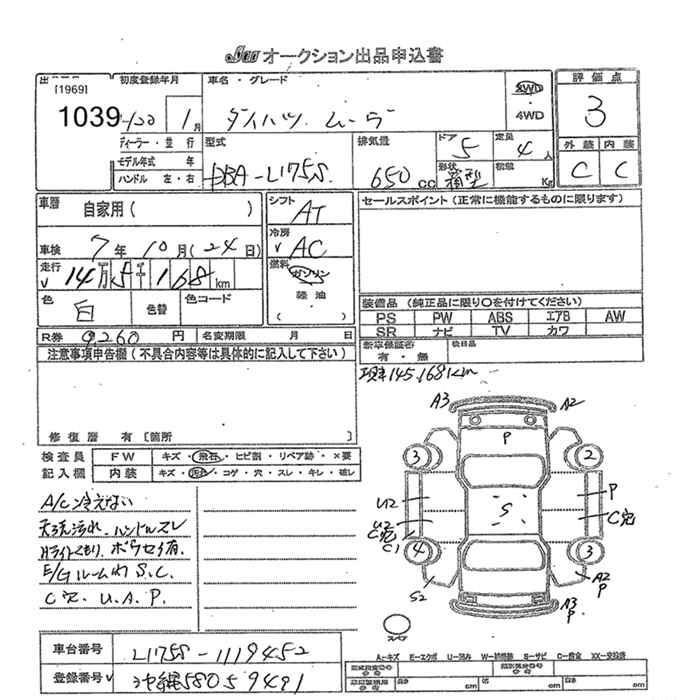 オークション出品申込書
[1969]
1039
初度登録年月
H20 年 1月
ディーラー・並行
モデル年式 年
ハンドル 左・右
車名・グレード
ダイハツ ムーヴ
2WD
・
4WD
型式
DBA-L175S
排気量
650 cc
ドア
5
形状
箱型
定員
4人
積載
Kg
評価点
3
外装 内装
C C
車歴
自家用( )
車検 7年10月(24日)
走行
√ 14万5千168km
色
白
色替
色コード
シフト
AT
冷房
√ AC
燃料
ガソリン
軽油
( )
R券 9,260 円
名変期限 月 日
セールスポイント(正常に機能するものに限ります)
装備品(純正品に限り○を付けてください)
PS PW ABS エアB AW
SR ナビ TV カワ
新車保証書
有・無
後日品
現車145,168Km
注意事項申告欄(不具合内容等は具体的に記入して下さい)
修復歴 有[箇所 ]
検査員 FW キズ・飛石・ヒビ割・リペア跡・×要
記入欄 内装 キズ・汚れ・コゲ・穴・スレ・キレ・破レ
A/C冷えない
天洗汚れ. ハンドルスレ
Hライトくもり. ボウセイ有.
E/Gルーム内 S.C.
C穴. U.A.P.
A3 A2
P
3 2
U2 P
S
U2 C穴
C穴
C1 4 3
S2 A2
P
A3
P
スペア
車台番号 L175S-1119452
登録番号√ 沖縄580ろ9491
A-キズ E-エクボ U-凹み W-補修跡 S-サビ C-腐食 XX-交換済
cm cm cm